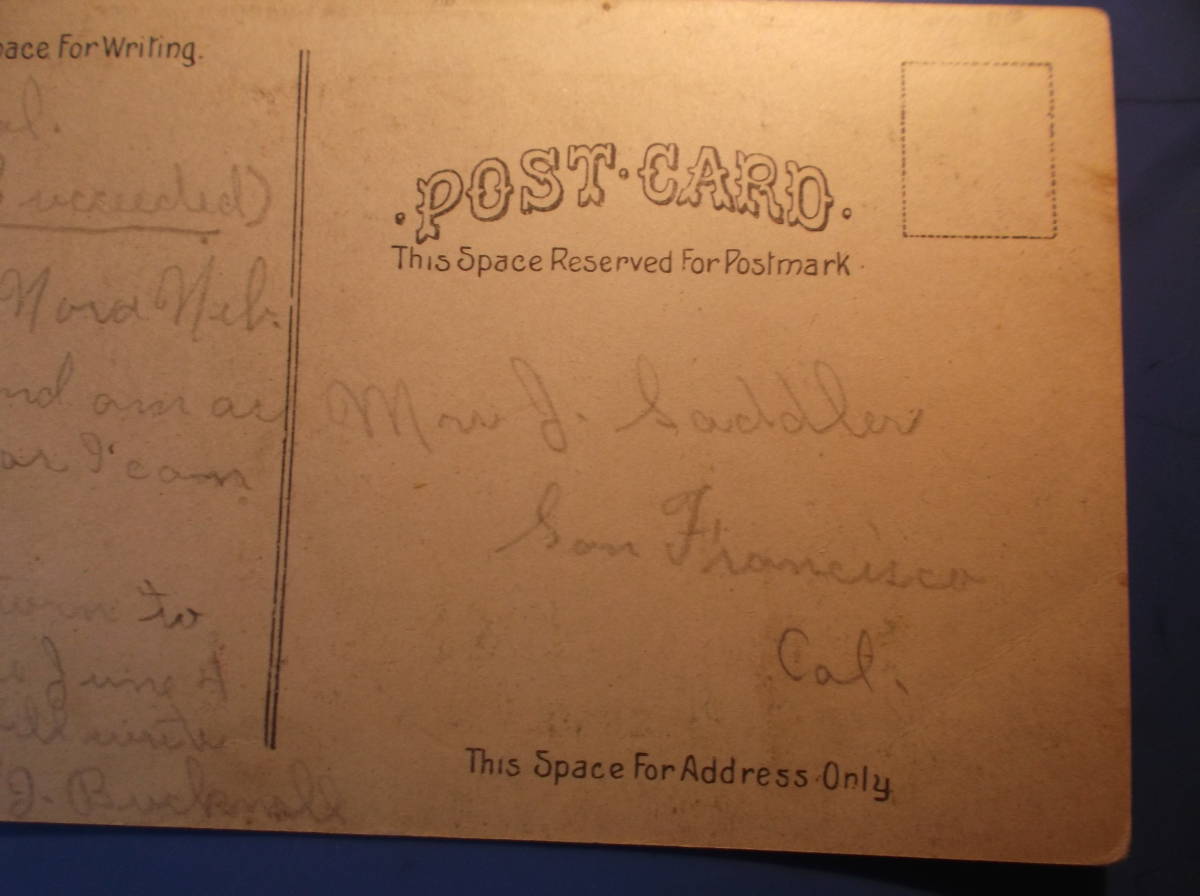 Space For Writing.
al.
Succeeded)
Nora Neb.
and am as
far I can
to
June 4
will write
J. Bucknall
POST CARD.
This Space Reserved For Postmark
Mrs J. Saddler
San Francisco
Cal.
This Space For Address Only